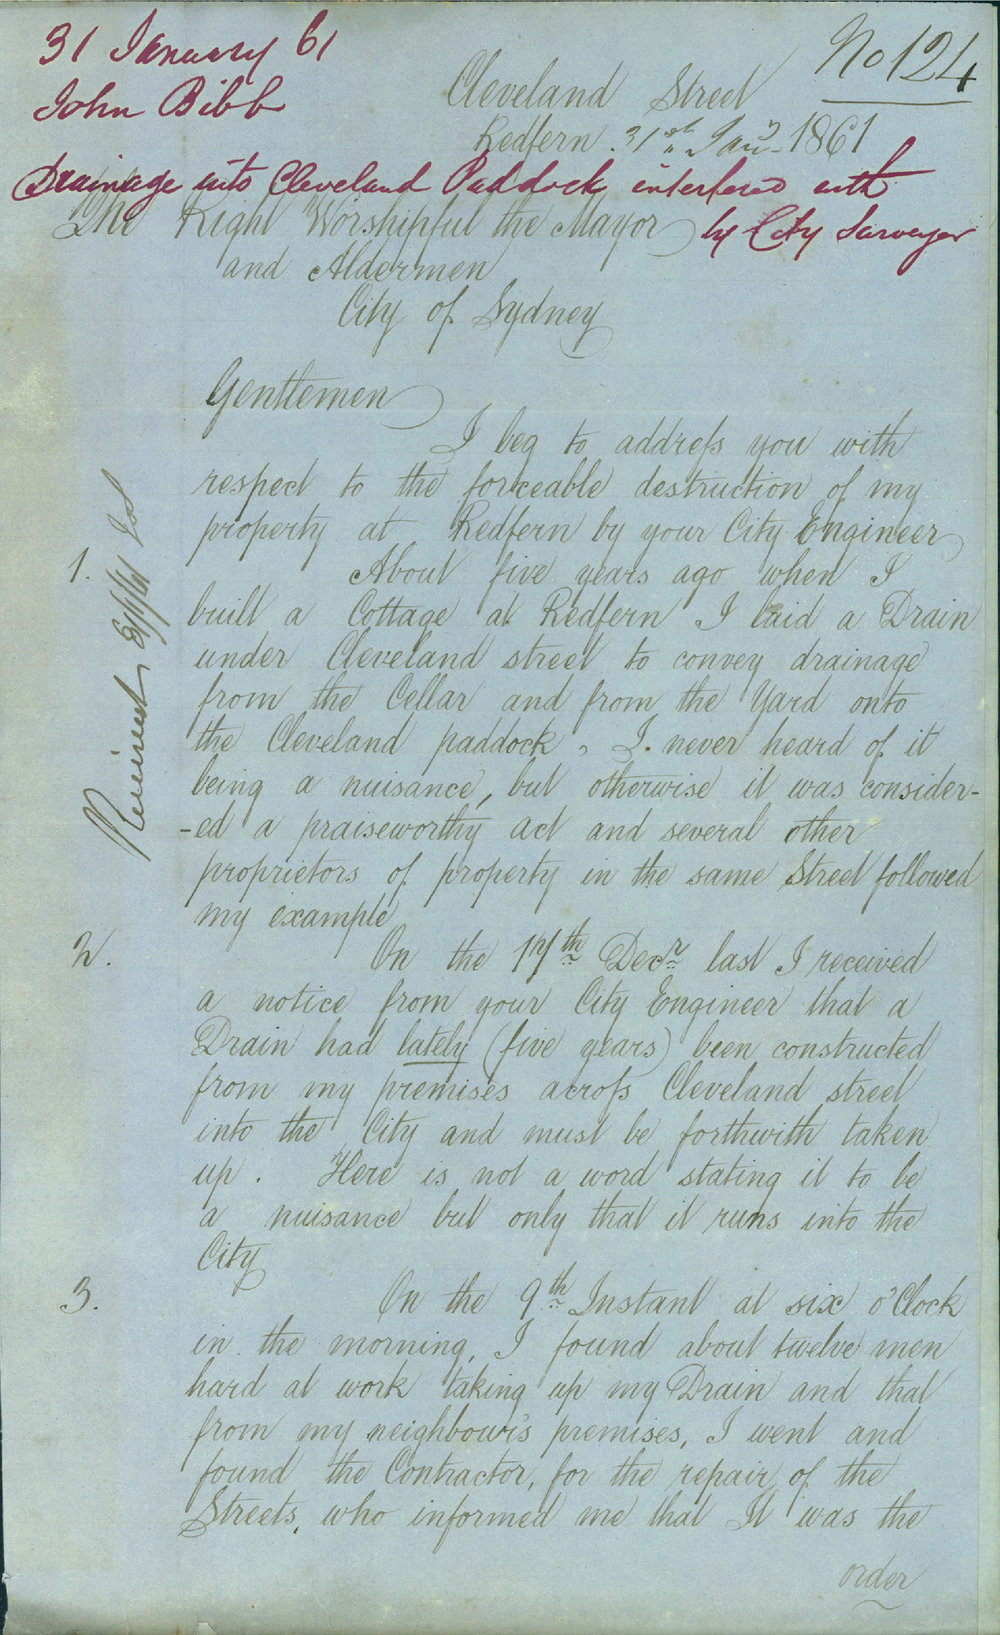 31 January 61
No 124
John Bibb
Cleveland Street
Redfern 31st Jany 1861
Drainage into Cleveland Paddock interfered with
by City Surveyor
The Right Worshipful the Mayor
and Aldermen
City of Sydney
Gentlemen
I beg to address you with
respect to the forceable destruction of my
property at Redfern by your City Engineer
1. About five years ago when I
built a Cottage at Redfern I laid a Drain
under Cleveland street to convey drainage
from the Cellar and from the Yard onto
the Cleveland paddock, I never heard of it
being a nuisance, but otherwise it was consider-
-ed a praiseworthy act and several other
proprietors of property in the same Street followed
my example
2. On the 17th Decr last I received
a notice from your City Engineer that a
Drain had lately (five years) been constructed
from my premises across Cleveland street
into the City and must be forthwith taken
up. Here is not a word stating it to be
a nuisance but only that it runs into the
City
3. On the 9th Instant at six o'Clock
in the morning, I found about twelve men
hard at work taking up my Drain and that
from my neighbour's premises, I went and
found the Contractor, for the repair of the
Streets, who informed me that It was the
order